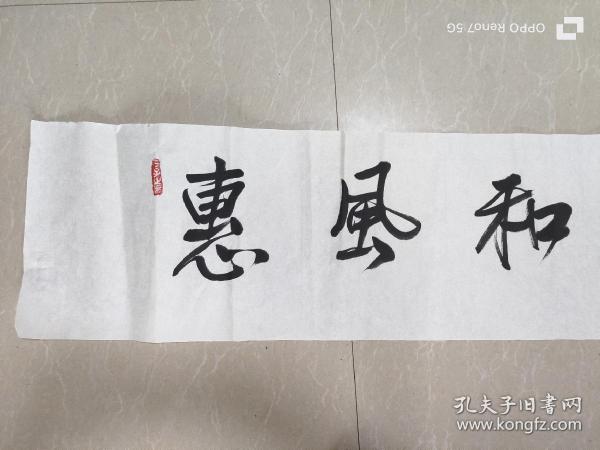 OPPO Reno7 5G
惠風和
孔夫子旧书网
www.kongfz.com